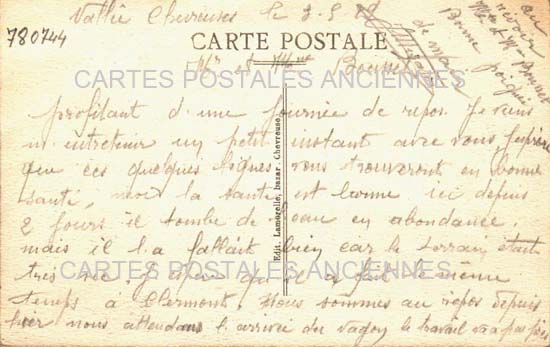 780744
Vallée Chevreuse le 8-5
au revoir
Mr et Mme Bonnet
Bonne poignée de main
CARTE POSTALE
Mr et Mme Bonnet
CARTES POSTALES ANCIENNES
profitant d'une journée de repos. Je viens
m entretenir un petit instant avec vous, j'espère
que ces quelques lignes vous trouveront en bonne
santé, moi la santé est bonne ici depuis
2 jours il tombe de l'eau en abondance,
mais il l'a fallait bien car le terrain était
très sec. qu il a fait le même
temps à Clermont. Nous sommes au repos depuis
hier nous attendons l arrivée du wagon le travail va pas
CARTES POSTALES ANCIENNES
Edit. Lamorelle, bazar, Chevreuse.